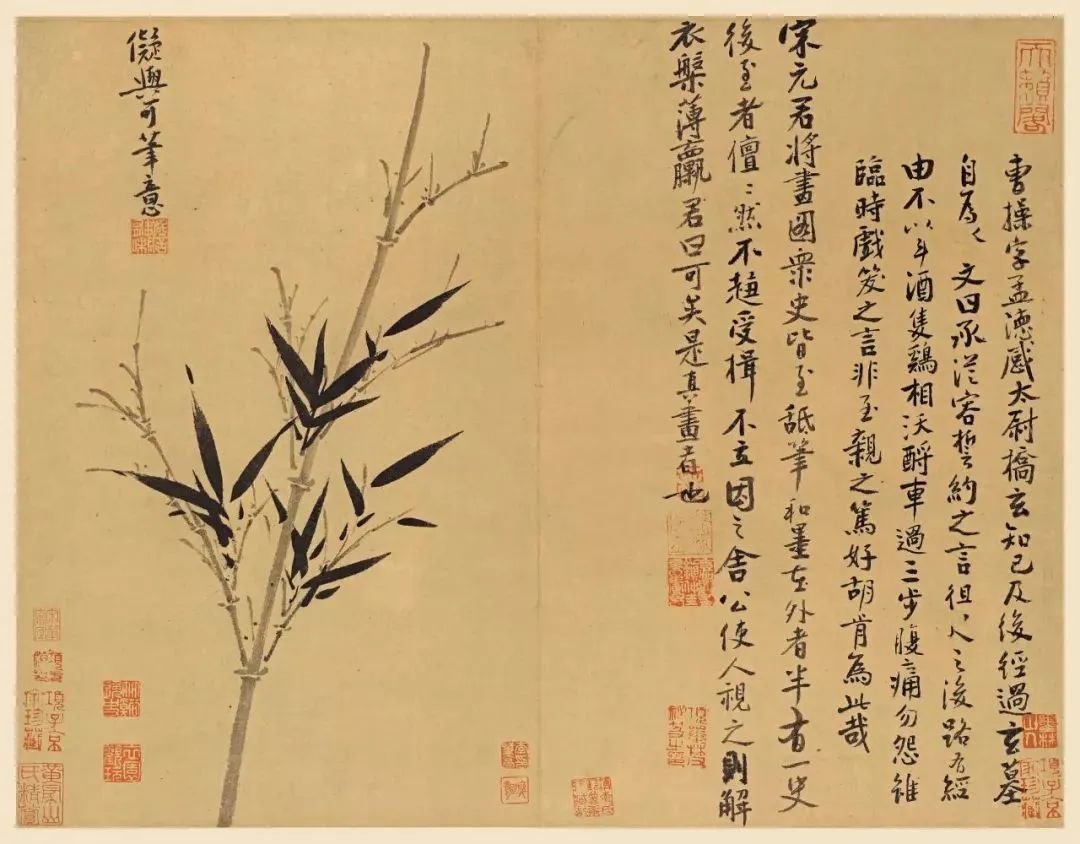 天籟閣
曹操字孟德感太尉橋玄知己及後經過玄墓
自為文曰承從容誓約之言徂之後路有經
由不以斗酒隻鷄相沃酹車過三步腹痛勿怨雖
臨時戲笑之言非至親之篤好胡肯為此哉
宋元君將畫圖衆史皆至舐筆和墨在外者半有一史
後至者儃〻然不趨受揖不立因之舍公使人視之則解
衣槃薄臝君曰可矣是真畫者也
儗與可筆意
墨林山人
項子京家珍藏
項子京家珍藏